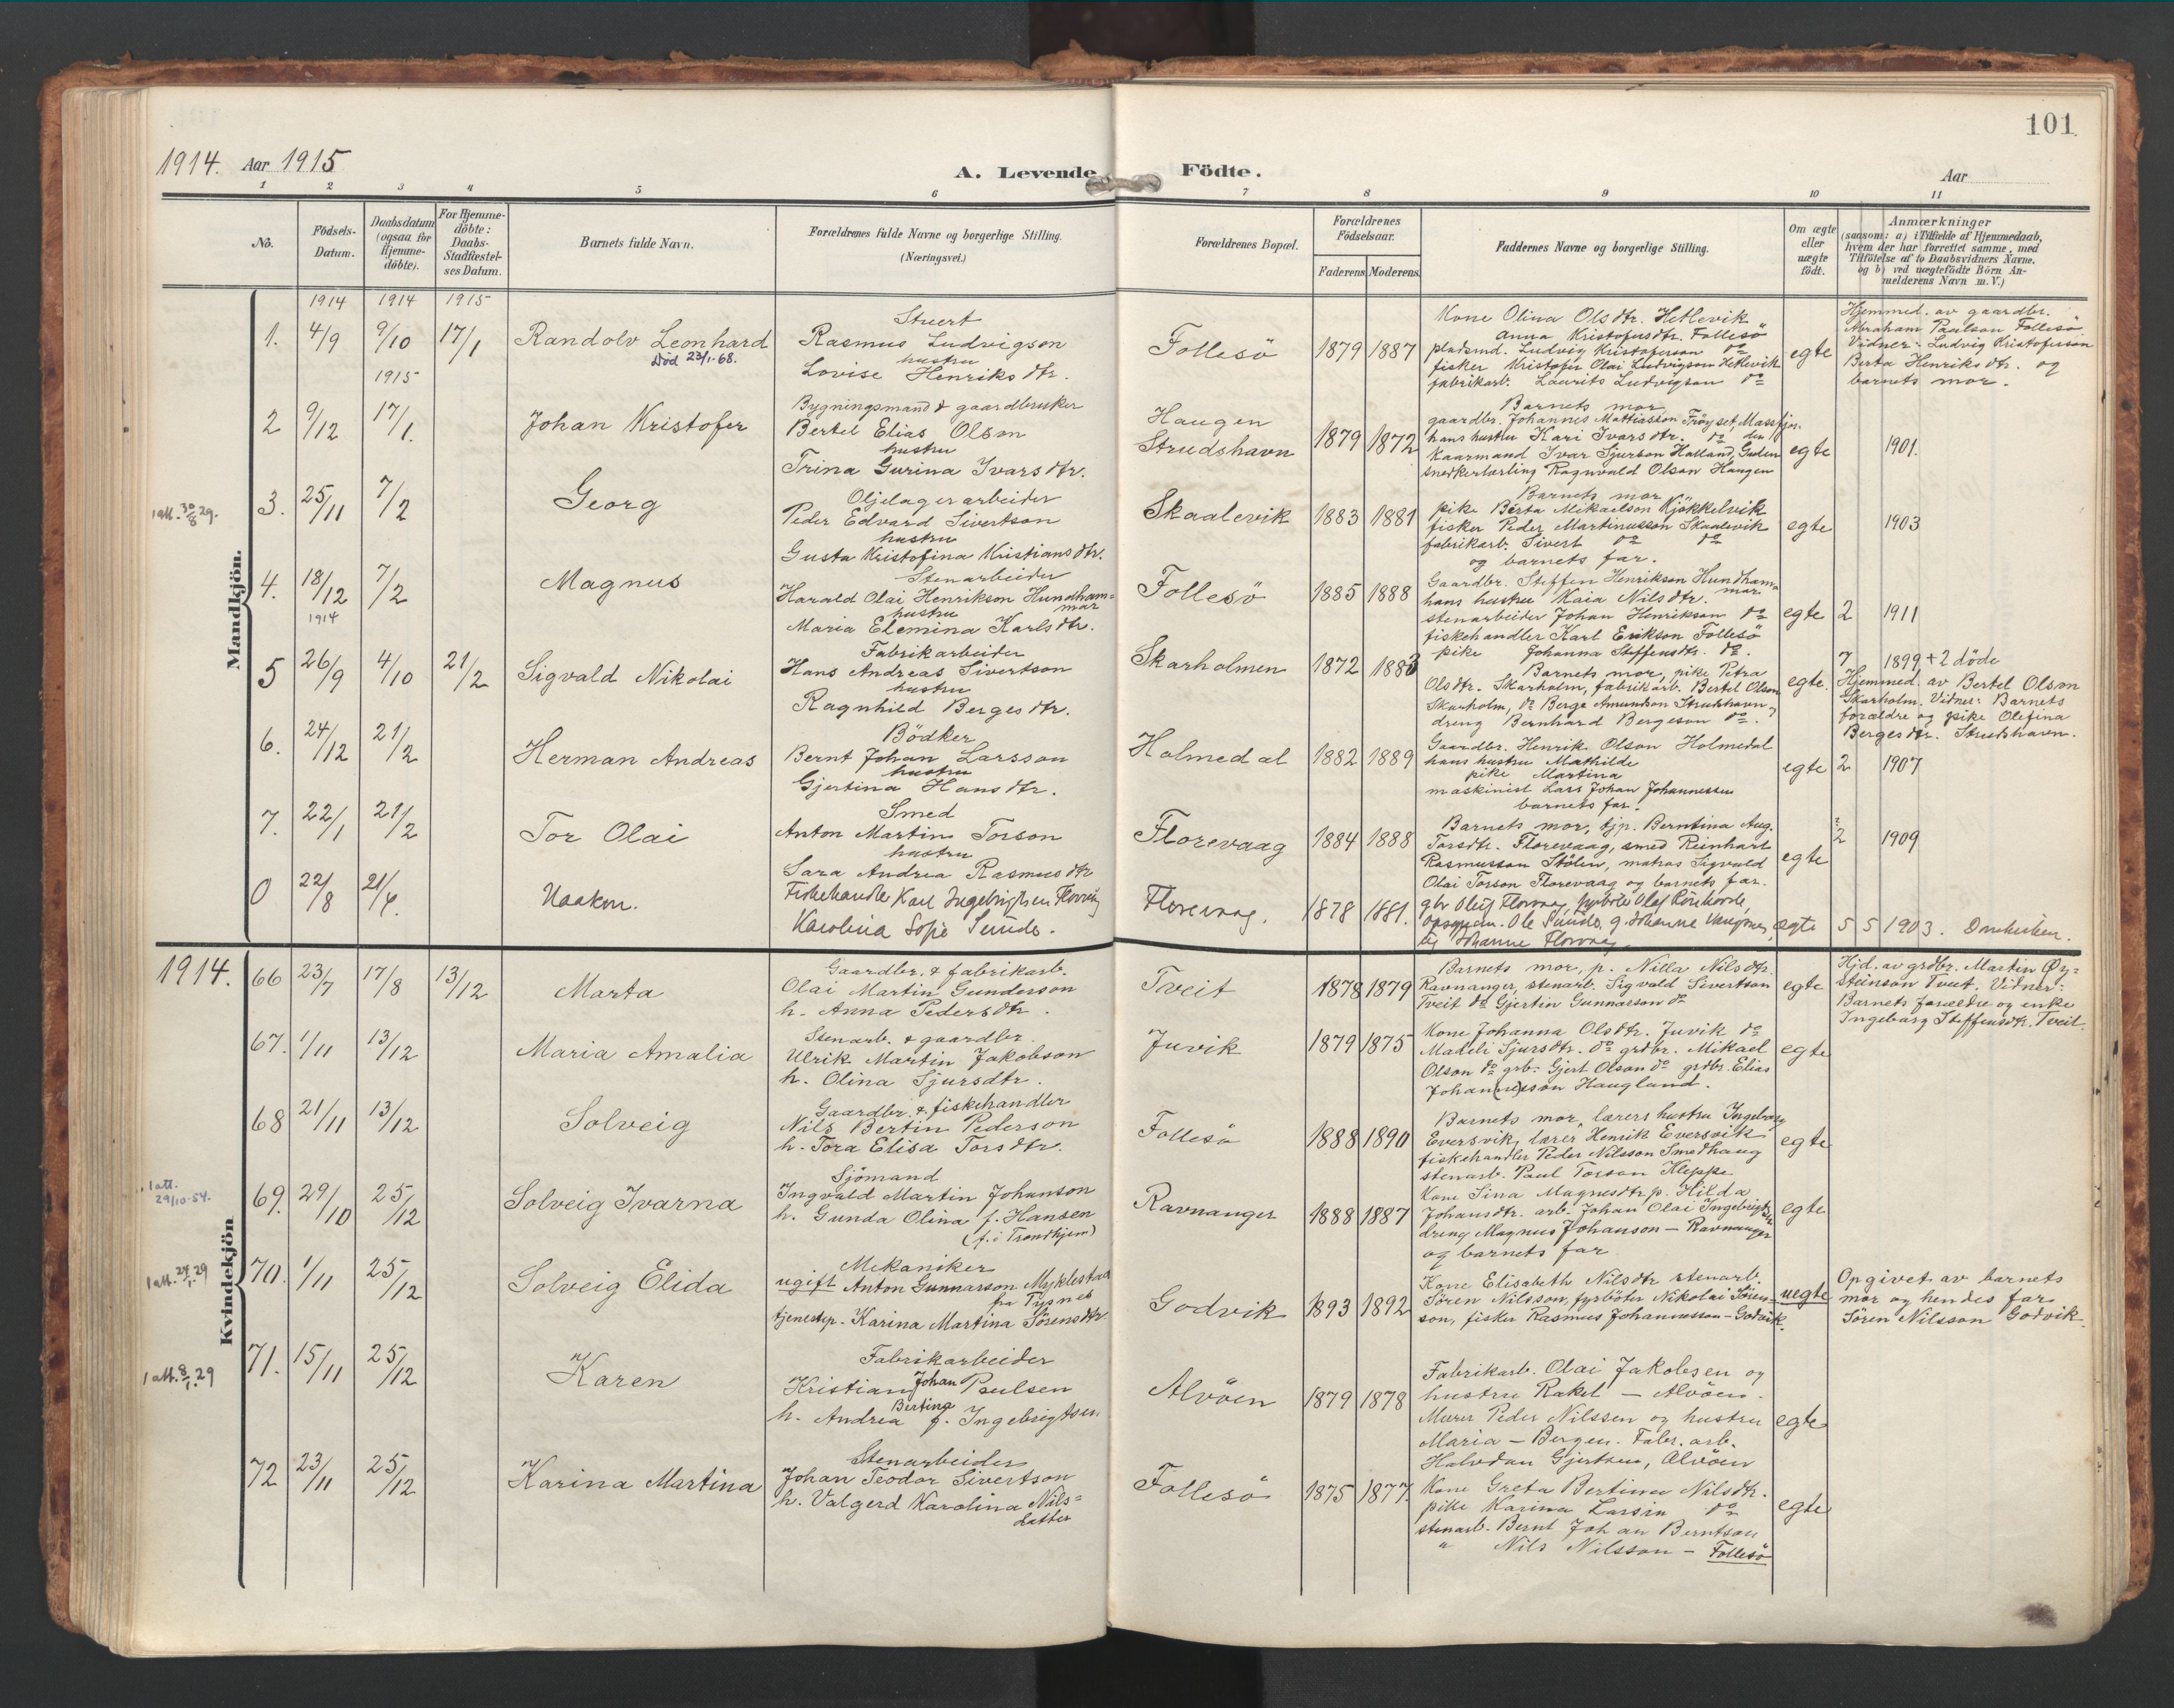 101
1914. Aar 1915
A. Levende Födte.
Aar
1 2 3 4 5 6 7 8 9 10 11
No.
Födsels-Datum.
Daabsdatum (ogsaa for Hjemme-döbte).
For Hjemme-döbte: Daabs-Stadfæstel-ses Datum.
Barnets fulde Navn.
Forældrenes fulde Navne og borgerlige Stilling. (Næringsvei.)
Forældrenes Bopæl.
Forældrenes Födselsaar.
Faderens Moderens
Faddernes Navne og borgerlige Stilling.
Om ægte eller uægte födt.
Anmærkninger
(saasom: a) i Tilfælde af Hjemmedaab,
hvem der har forrettet samme, med
Tilföielse af to Daabsvidners Navne.
og b) ved uægtefödte Börn An-
melderens Navn m. V.)
Mandkjön.
1914 1914 1915
1. 4/9 9/10 17/1
Randolv Leonhard
Död 23/1-68.
Stuert
Rasmus Ludvigson
hustru
Lovise Henriksdtr.
Follesö 1879 1887
Kone Olina Olsdtr. Hetlevik
Anna Kristofusdtr. Follesö
pladsmd. Ludvig Kristoferson do
fisker Kristofer Olai Ludvigson Hetlevik
fabrikarb. Laurits Ludvigson do
egte
Hjemmed. av gaardbr.
Abraham Paulson Follesö.
Vidner: Ludvig Kristoferson
Berta Henriksdtr. og
barnets mor.
1915
2 9/12 17/1.
Johan Kristofer
Bygningsmand & gaardbruker
Bertel Elias Olson
hustru
Trina Gurina Ivarsdtr.
Haugen
Strudshavn
1879 1872
Barnets mor
gaardbr. Johannes Mattiasson Fröyset, Massfjor.
hans hustru Kari Ivarsdtr. do
kaarmand Ivar Sjurson Halland,
snedkerlærling Ragnvald Olson Haugen
egte 1901.
1 att. 30/8 29.
3. 25/11 7/2
Georg
Oljelagerarbeider
Peder Edvard Sivertson
hustru
Gusta Kristofina Kristiansdtr.
Skaalevik 1883 1881
Barnets mor
pike Berta Mikaelson Kjökkelvik
fisker Peder Martinusson Skaalevik
fabrikarb. Sivert do do
og barnets far.
egte 1903
4. 18/12 7/2
1914
Magnus
Stenarbeider
Harald Olai Henrikson Hundham=
mar
hustru
Maria Elemina Karlsdtr.
Follesö 1885 1888
Gaardbr. Steffen Henrikson Hundham=
mar
hans hustru Kaia Nilsdtr.
stenarbeider Johan Henrikson do
fiskehandler Karl Erikson Follesö
pike Johanna Steffensdtr. do.
egte 2 1911
5 26/9 4/10 21/2
Sigvald Nikolai
Fabrikarbeider
Hans Andreas Sivertson
hustru
Ragnhild Bergesdtr.
Skarholmen 1872 1883
Barnets mor, pike Petra
Olsdtr. Skarholm, fabrikarb. Bertel Olson
Skarholm, do Berge Amundson Strudshavn,
dreng Bernhard Bergeson do.
egte.
7 1899 + 2 döde
Hjemmed. av Bertel Olson
Skarholm. Vidner: Barnets
forældre og pike Olefina
Bergesdtr. Strudshavn.
6. 24/12 21/2
Herman Andreas
Bödker
Bernt Johan Larsson
hustru
Gjertina Hansdtr.
Holmedal 1882 1889
Gaardbr. Henrik Olson Holmedal
hans hustru Mathilde
pike Martina
maskinist Lars Johan Johannessen
barnets far.
egte 2 1907
7. 22/1 21/2
Tor Olai
Smed
Anton Martin Torson
hustru
Sara Andrea Rasmusdtr
Florevaag 1884 1888
Barnets mor, tjp. Berntina Aug.
Torsdtr. Florevaag, smed Reinhart
Rasmusson Stölen, matros Sigvald
Olai Torson Florevaag og barnets far.
egte 2 1909
0 22/8 21/4.
Haakon.
Fiskehandler Karl Ingebrigtsen Florvåg
Karolina Sofie Sunde.
Florevaag. 1878 1881.
ægte 5 5 1903.
Kvindekjön
1914.
66 23/7 17/8 13/12
Marta
Gaardbr. & fabrikarb.
Olai Martin Gunderson
h. Anna Pedersdtr.
Tveit 1878 1879
Barnets mor, p. Nilla Nilsdtr.
Ravnanger, stenarb. Sigvald Sivertson
Tveit do Gjertin Gunnarson do
egte
Hjd. av grdbr. Martin Öy=
steinson Tveit. Vidner:
Barnets forældre og enke
Ingeborg Steffensdtr. Tveit.
67. 1/11 13/12
Maria Amalia
Stenarb. & gaardbr.
Ulrik Martin Jakobson
h. Olina Sjursdtr.
Juvik 1879 1875
Kone Johanna Olsdtr. Juvik do
Makeli Sjursdtr. do grdbr. Mikael
Olson do grb. Gjert Olson do grdbr. Elias
Johan(ne)sson Haugland.
egte
68 21/11 13/12
Solveig
Gaardbr. & fiskehandler
Nils Bertin Pederson
h. Tora Elisa Torsdtr.
Follesö 1888 1890
Barnets mor, lærers hustru Ingeborg
Eversvik, lærer Henrik Eversvik
fiskehandler Peder Nilsson Smedhaug
stenarb. Paul Torson Kleppe
egte
1 att.
29/10-54.
69. 29/10 25/12
Solveig Ivarna
Sjömand
Ingvald Martin Johanson
h. Gunda Olina f. Hansen
(f. i Trondhjem)
Ravnanger 1888 1887
Kone Sina Magnesdtr p. Hilda
Johansdtr. arb. Johan Olai Ingebrigtsen
dreng Magnus Johanson – Ravnanger
og barnets far
egte
70. 1/11 25/12
Solveig Elida
Mekaniker
ugift Anton Gunnarson Myklestad
fra Tysnes
tjenestep. Karina Martina Sörensdtr
Godvik 1893 1892
Kone Elisabeth Nilsdtr stenarb.
Sören Nilsson, fyrböter Nikolai Sören=
son, fisker Rasmus Johannesson – Godvik.
uegte
Opgivet av barnets
mor og hendes far
Sören Nilsson Godvik.
1 att. 8/1.29
71. 15/11 25/12
Karen
Fabrikarbeider
Kristian Johan Paulsen
h. Andrea Bertina f. Ingebrigtsen
Alvöen 1879 1878
Fabrikarb. Olai Jakobsen og
hustru Rakel – Alvöen.
Murer Peder Nilssen og hustru
Maria – Bergen. Fabr. arb.
Halvdan Gjertsen, Alvöen
egte
72 23/11 25/12
Karina Martina
Stenarbeider
Johan Teodor Sivertson
h. Valgerd Karolina Nils=
datter
Follesö 1875 1877.
Kone Greta Bertina Nilsdtr.
pike Karina Larsen do
stenarb. Bernt Johan Berntson
" Nils Nilsson – Follesö
egte